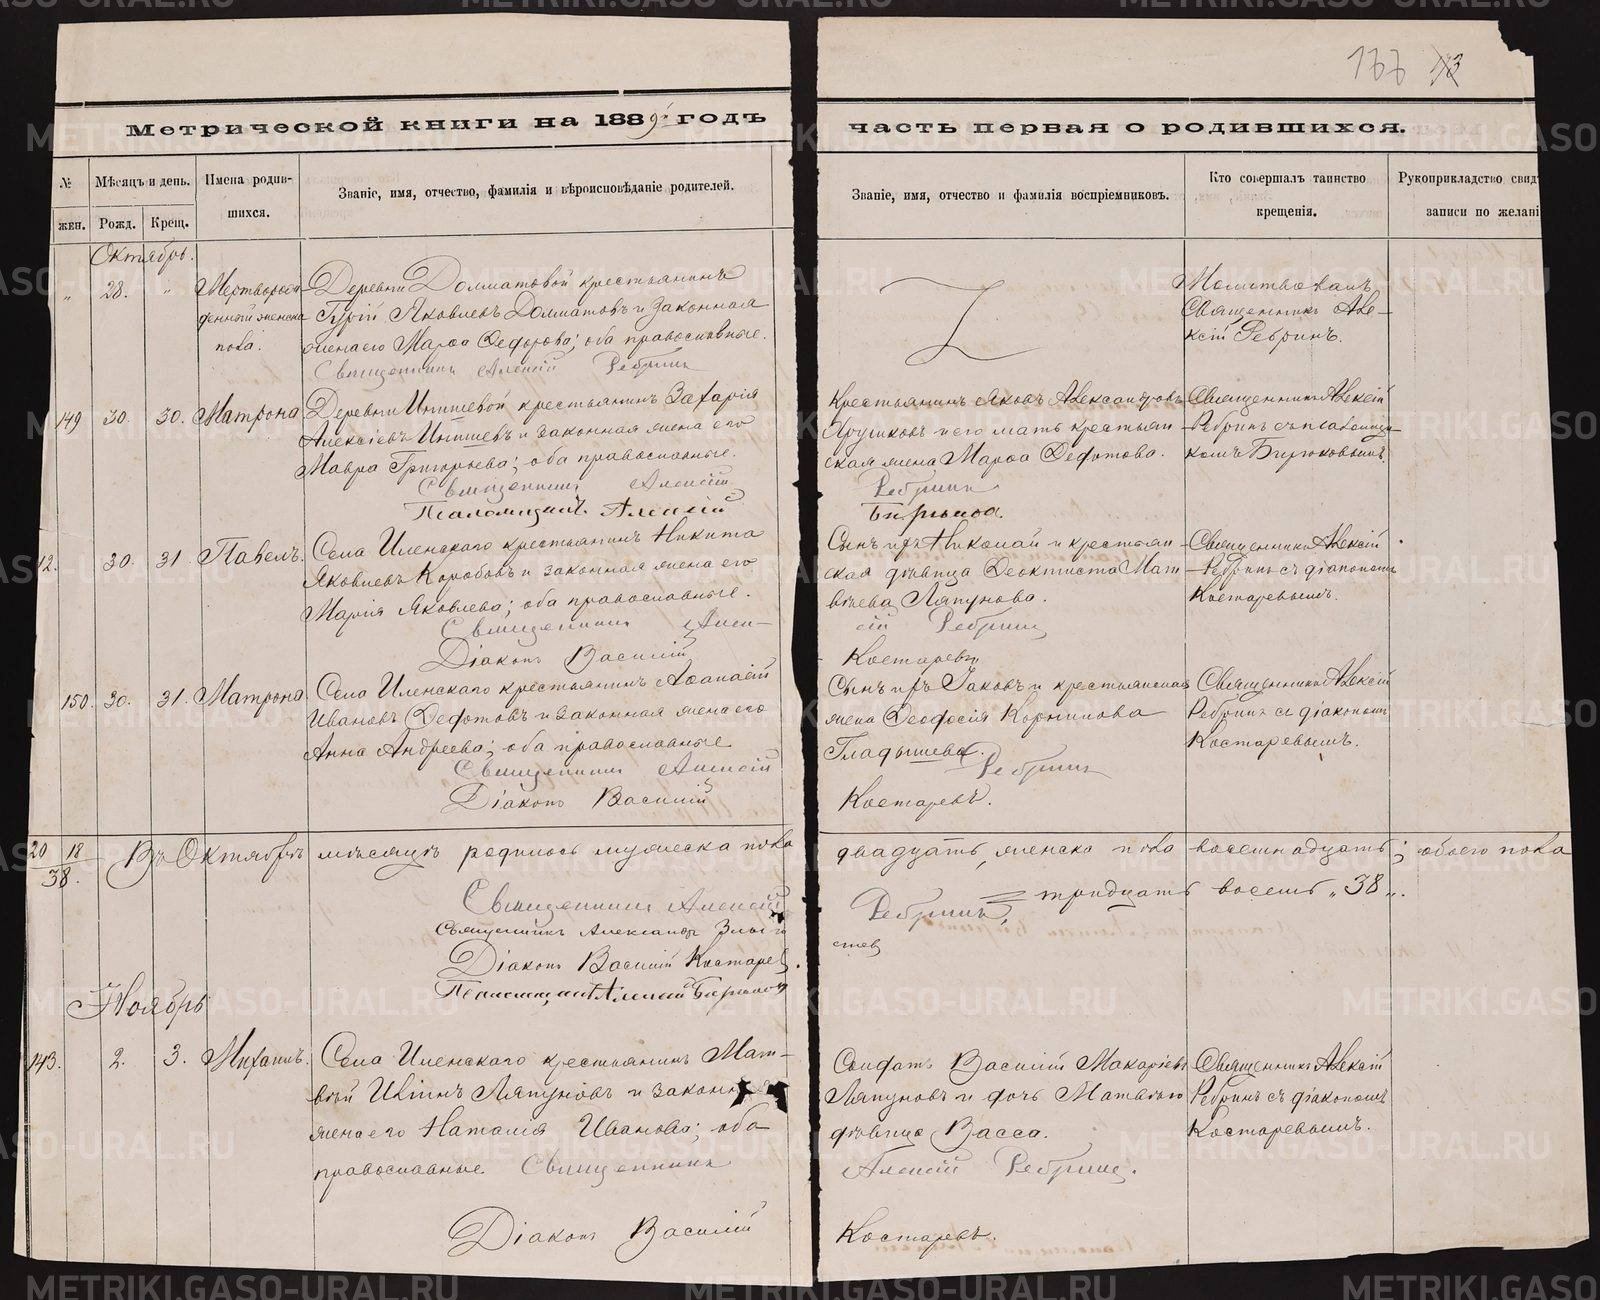 177 13
Метрической книги на 1889 годъ
часть первая о родившихся.
№
Мѣсяцъ и день.
Имена родив-
шихся.
Званіе, имя, отчество, фамилія и вѣроисповѣданіе родителей.
жен.
Рожд.
Крещ.
Званіе, имя, отчество и фамилія воспріемниковъ.
Кто совершалъ таинство
крещенія.
Рукоприкладство свид
записи по желані
Октябрь.
" 28. "
Мертворож-
денный женска
пола.
Деревни Долматовой крестьянинъ
Гурій Яковлевъ Долматовъ и законная
жена его Марѳа Ѳедорова; оба православные.
Священникъ Алексій Ребринъ
Молитвовалъ
Священникъ Але-
ксій Ребринъ.
149 30. 30. Матрона
Деревни Инишевой крестьянинъ Захарія
Алексіевъ Инишевъ и законная жена его
Мавра Григорьева; оба православные.
Священникъ Алексій
Псаломщикъ Алексій
Крестьянинъ Яковъ Александровъ
Хрушковъ и его мать крестьян
ская жена Марѳа Ѳедотова.
Ребринъ
Бирюковъ.
Священникъ Алексій
Ребринъ съ псаломщи
комъ Бирюковымъ.
12. 30. 31 Павелъ.
Села Иленскаго крестьянинъ Никита
Яковлевъ Коробовъ и законная жена его
Марія Яковлева; оба православные.
Священникъ Алек-
Діаконъ Василій
Сынъ ихъ Николай и крестьян
ская дѣвица Ѳеоктиста Мат
вѣева Ляпунова.
сій Ребринъ
Костаревъ
Священникъ Алексій
Ребринъ съ діакономъ
Костаревымъ.
150. 30. 31. Матрона
Села Иленскаго крестьянинъ Аѳанасій
Ивановъ Ѳедотовъ и законная жена его
Анна Андреева; оба православные
Священникъ Алексій
Діаконъ Василій
Сынъ ихъ Іаковъ и крестьянская
жена Ѳеодосія Корнилова
Гладышева.
Ребринъ
Костаревъ.
Священникъ Алексій
Ребринъ съ діакономъ
Костаревымъ.
20 18
38.
Въ Октябрѣ мѣсяцѣ родилось мужеска пола
двадцать, женска пола восемнадцать; обоего пола
тридцать восемь „38„.
Священникъ Алексій
Ребринъ,
Священникъ Александръ
Діаконъ Василій Костарев.
Псаломщикъ Алексій Бирюков
Ноябрь
143. 2. 3. Михаилъ.
Села Иленскаго крестьянинъ Мат-
вѣй Ивлинъ Ляпуновъ и законная
жена его Наталія Иванова; оба
православные Священникъ
Діаконъ Василій
Солдатъ Василій Макаріевъ
Ляпуновъ и дочь Матвѣя
дѣвица Васса.
Алексій Ребринъ.
Костаревъ.
Священникъ Алексій
Ребринъ съ діакономъ
Костаревымъ.
METRIKI.GASO-URAL.RU